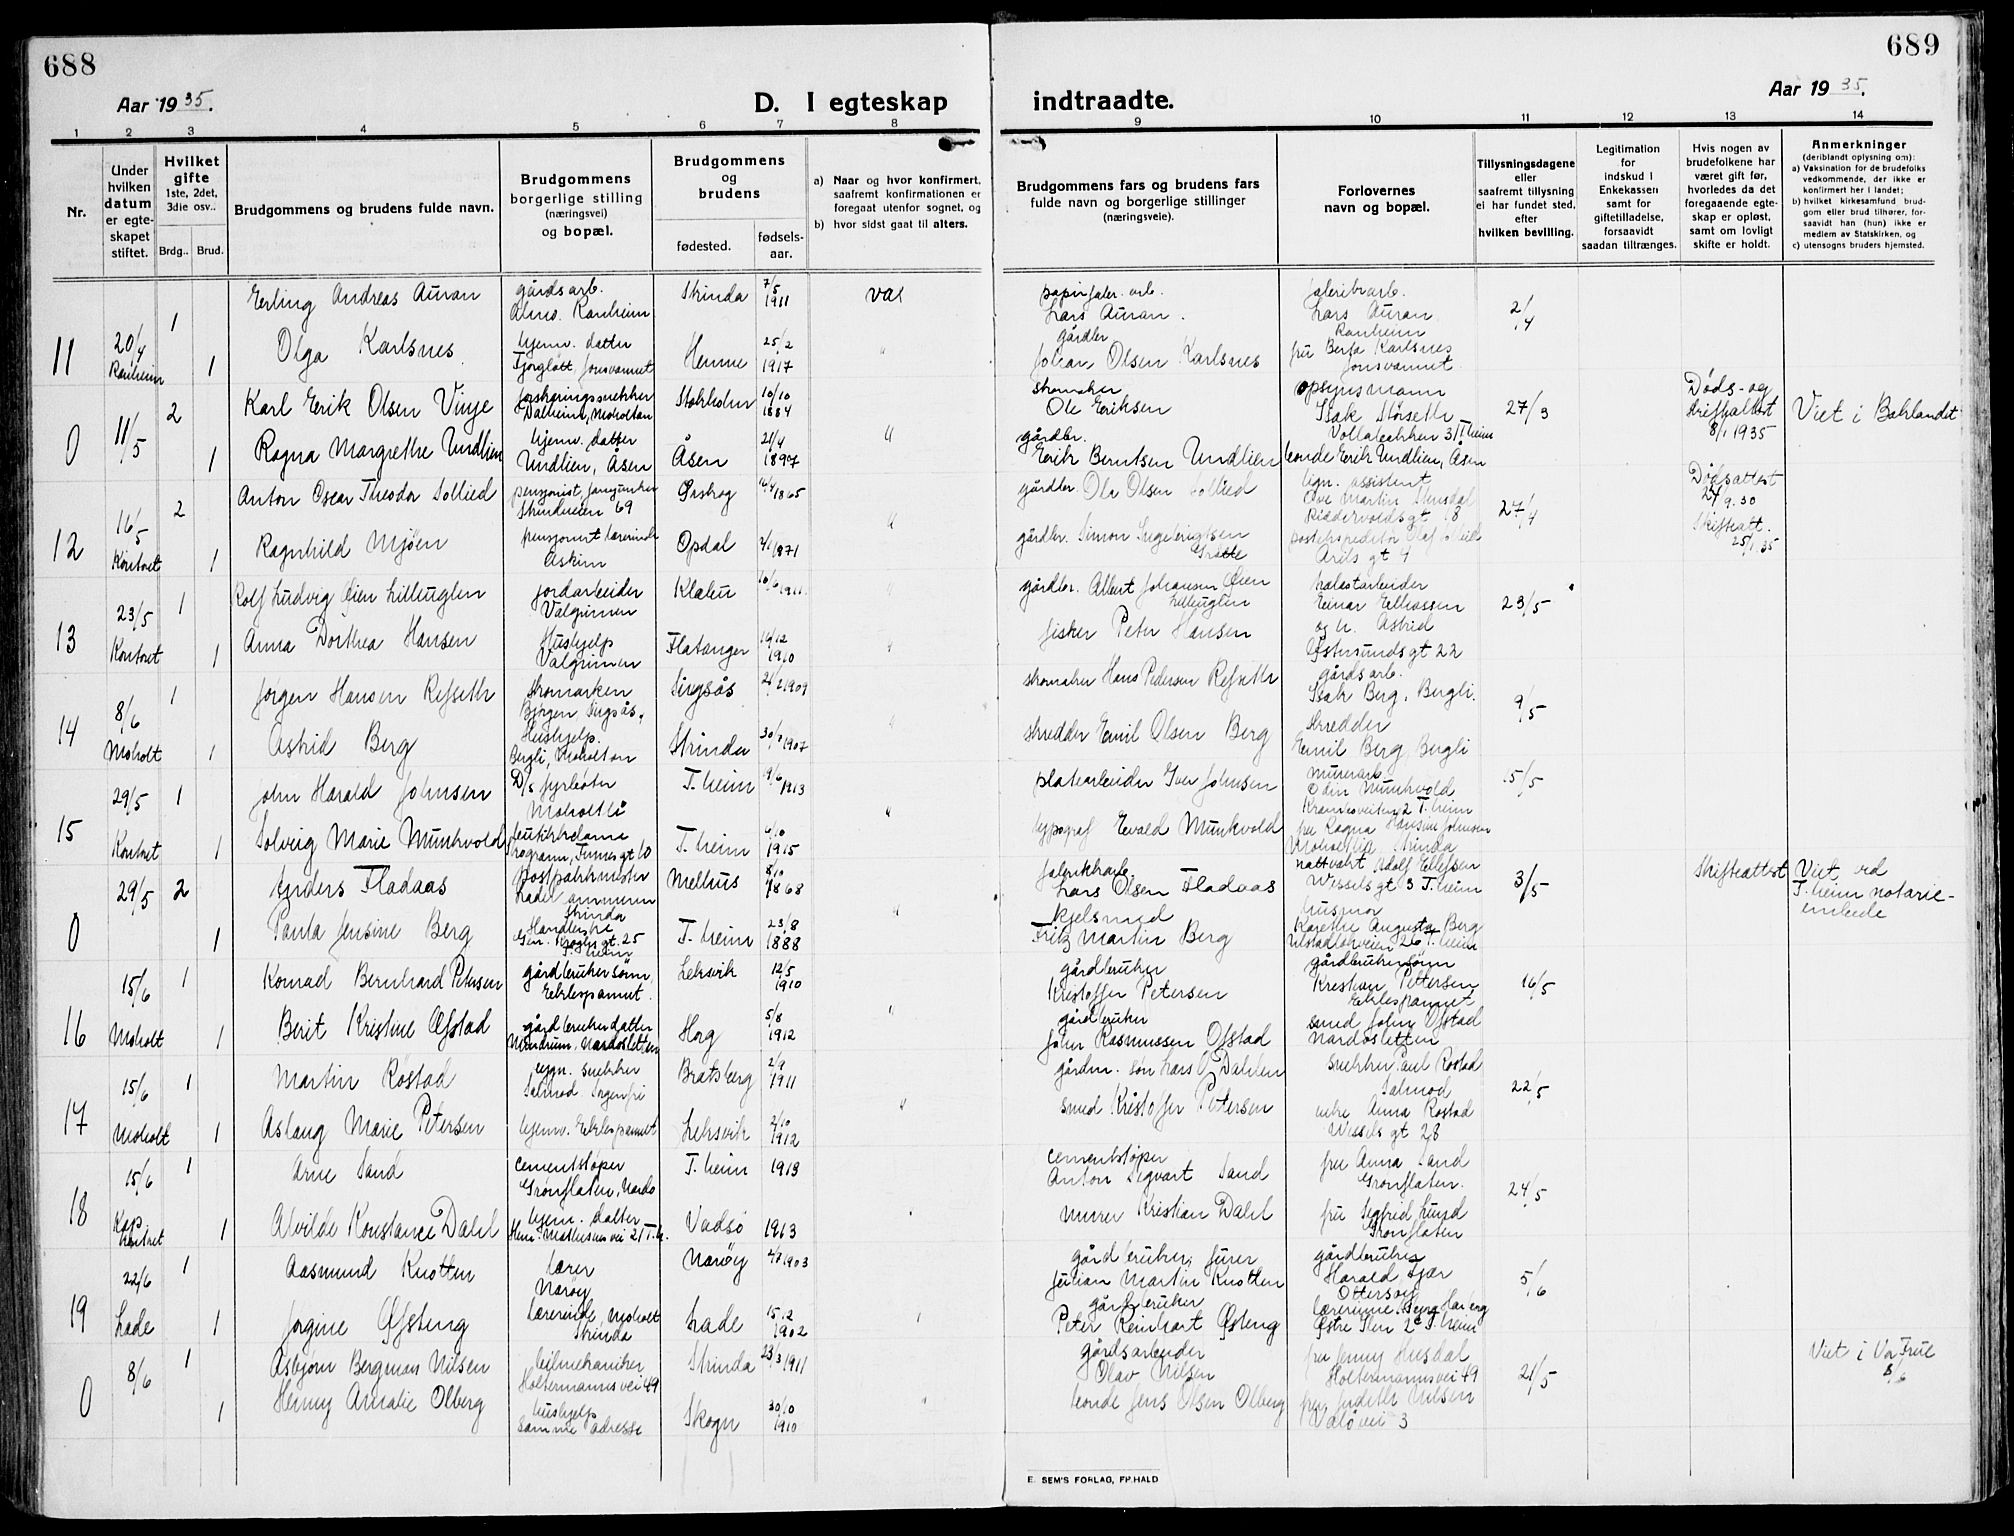 688
Aar 1935.
D. I egteskap
1 2 3 4 5 6 7 8
Nr.
Under hvilken datum er egte- skapet stiftet.
Hvilket gifte 1ste, 2det, 3die osv..
Brdg.. Brud.
Brudgommens og brudens fulde navn.
Brudgommens borgerlige stilling (næringsvei) og bopæl.
Brudgommens og brudens
fødested. fødsels- aar.
a) Naar og hvor konfirmert, saafremt konfirmationen er foregaat utenfor sognet, og
b) hvor sidst gaat til alters.
11 20/4 Ranheim 1 Erling Andreas Auran gårdsarb. Ranheim Strinda 7/5 1911 vac
1 Olga Karlsnes hjemv. datter Jonsvannet Hemne 25/2 1917 "
0 11/5 2 Karl Erik Olsen Vinje Dalheim, Moholtan Stokholm 10/10 1884 "
1 Ragna Margrethe Undlien hjemv. datter Undlien, Åsen Åsen 21/4 1897
12 16/5 Kontoret 2 Anton Oscar Theodor Sollied pensjonist, Strindveien 69 Ørskog 1865 "
1 Ragnhild Mjøen pensjonert lærerinde Askim Opdal 1871
13 23/5 Kontoret 1 Rolf Ludvig Øien Lilleuglen jordarbeider Valgrinnen Klæbu 10/6 1911 "
1 Anna Dorthea Hansen Hushjelp Valgrinnen Flatanger 1910 "
14 8/6 Moholt 1 Jørgen Hansen Refseth Singsås. Singsås 1909
1 Astrid Berg Hushjelp. Bergli, Moholtan Strinda 1907 "
15 29/5 Kontoret 1 John Harald Johnsen D/s fyrbøter Moholtli T.heim 9/6 1913
1 Solveig Marie Munkvold butikkdame T.heim 6/10 1915 "
0 29/5 2 Anders Fladaas Strinda Melhus 8/10 1868
1 Paula Jensine Berg gt. 25 T.heim T.heim 23/8 1888 "
16 15/6 Moholt 1 Konrad Bernhard Petersen gårdbrukersønn Eklespannet. Leksvik 12/5 1910
1 Berit Kristine Øfstad gårdbrukerdatter Nardosletten Horg 5/8 1912 "
17 15/6 Moholt 1 Martin Rostad bygn. snekker Salmod. Sorgenfri Bratsberg 2/9 1911
1 Aslaug Marie Petersen hjemv. Eklespannet Leksvik 2/10 1912 "
18 15/6 Kap. Kontoret 1 Arne Sand cementstøper Grønflaten, Nardo T.heim 1913
1 Alvilde Konstance Dahl hjem. datter Vadsø 1913
19 22/6 Lade 1 Aasmund Knotten Lærer Nærøy Nærøy 1903
1 Jørgine Øfsteng Lærerinde, Moholt Strinda Lade 15/12 1902
0 8/6 1 Asbjørn Bergman Nilsen bilmekaniker Holtermannsvei 49 Strinda 23/3 1911
1 Henny Amalie Olberg hushjelp samme adresse Skogn 30/10 1910 "
689
Aar 1935.
indtraadte.
9 10 11 12 13 14
Brudgommens fars og brudens fars fulde navn og borgerlige stillinger (næringsveie).
Forlovernes navn og bopæl.
Tillysningsdagene eller saafremt tillysning ei har fundet sted, efter hvilken bevilling.
Legitimation for indskud i Enkekassen samt for giftetilladelse, forsaavidt saadan tiltrænges.
Hvis nogen av brudefolkene har været gift før, hvorledes da det foregaaende egte- skap er opløst, samt om lovligt skifte er holdt.
Anmerkninger
(deriblandt oplysning om):
a) Vaksination for de brudefolks vedkommende, der ikke er konfirmert her i landet;
b) hvilket kirkesamfund brud- gom eller brud tilhører, for- saavidt han (hun) ikke er medlem av Statskirken, og
c) utensogns bruders hjemsted.
papirfabr. arb. Lars Auran. fabrikkarb. Lars Auran Ranheim 2/4
gårdbr. Johan Olsen Karlsnes fru Berta Karlsnes Jonsvannet
skomaker Ole Eriksen opsynsmann Isak Størseth Vollabakken 31 T.heim 27/3 Døds- og skifteattest 8/1 1935 Viet i Baklandet
gårdbr. Erik Berntsen Undlien bonde Erik Undlien, Åsen
gårdbr. Ole Olsen Sollied lign. assistent Ove Martin Stensdal Riddervoldsgt 18 27/4 Dødsattest 24/9.30 Skifteatt. 25/1.35
gårdbr. Simon Ingebrigtsen postekspeditør Olaf Arils gt 4
gårdbr. Albert Johansen Øien Lilleuglen Einar Eliassen 23/5
fisker Peter Hansen og h. Astrid Østersundsgt 22
skomaker Hans Pedersen Refseth gårdsarb. Isak Berg. Bergli. 9/5
skredder Emil Olsen Berg skredder Emil Berg, Bergli
platearbeider Iver Johnsen murerarb. Odin Munkvold T.heim 5/5
typograf Evald Munkvold fru Ragna Hansine Johnsen Strinda
fabrikkarb. Lars Olsen Fladaas nattvakt Adolf Ellefsen Wessels gt 3 T.heim 3/5 Skifteattest Viet ved T.heim notarie- embede
kjelsmed Fritz Martin Berg husmor Karethe Augusta Berg T.heim
gårdbruker Kristoffer Petersen gårdbrukersønn Kristian Pettersen Eklespannet 16/5
gårdbruker John Rasmussen Øfstad smed John Øfstad Nardosletten
gårdm. søn Lars O. Dahlen snekker Paul Rostad Salmod 22/5
smed Kristoffer Petersen enke Anna Rostad Wessels gt 28
cementstøper Anton Sigvart Sand fru Anna Sand Grønflaten. 24/5
murer Kristian Dahl fru Sigfrid Lund Grønflaten
gårdbruker, Julian Martin Knotten gårdbruker Harald Fjær Ottersøy 5/6
gårdbruker Peter Reinhart Øfsteng Østre Ilen T.heim
gårdsarbeider Olav Nilsen fru Jenny Husdal Holtermannsvei 49 21/5 Viet i Vor Frue 8/6
bonde Jens Olsen Olberg fru Judith Nilsen Valøvei 3
E. SEM'S FORLAG, FR.HALD